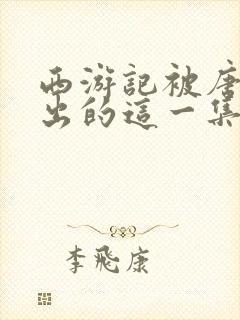 西游記被唐
出的這一集
李飛康